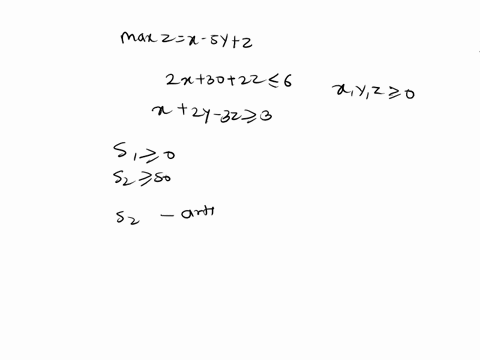 max z = x - 5y + z
2x + 30 + 2z ≤ 6
x, y, z ≥ 0
x + 2y - 3z ≥ 3
S1 ≥ 0
S2 ≥ 50
S2 - arti